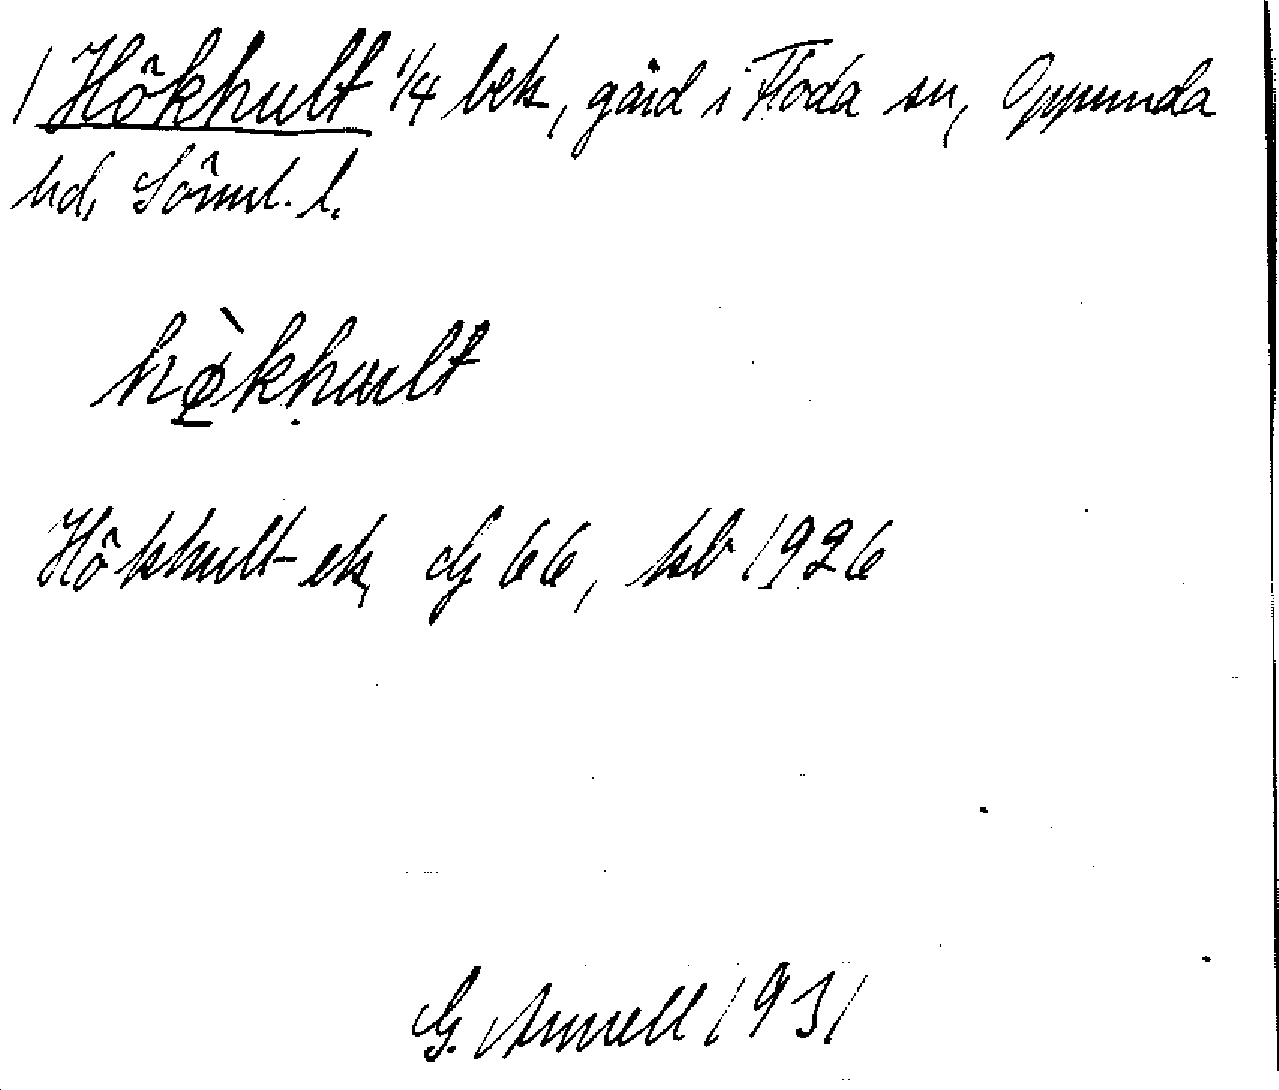 / Hökhult 1/4 bek, gård i Floda sn, Oppunda
hd, Söml. l.
hø̀khult
Hökhult ek, G 66, kb 1926
G. Arnell 1931